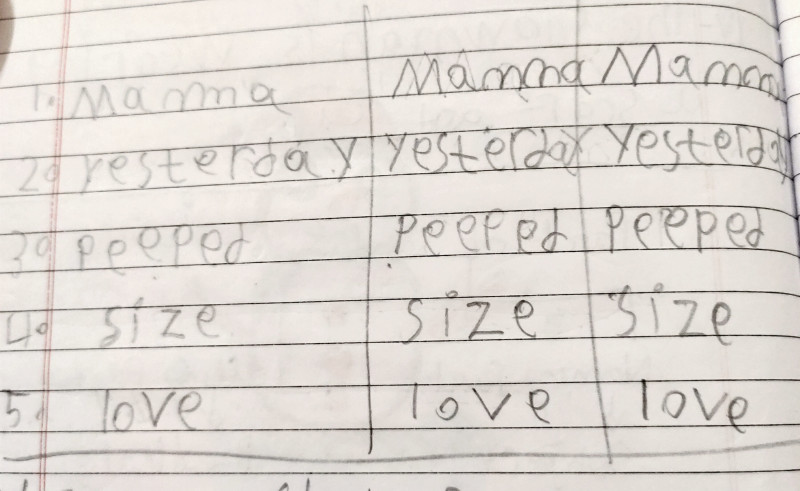 1. Mamma Mamma Mamm
2. yesterday yesterday yesterday
3. peeped peeped peeped
4. size size size
5. love love love